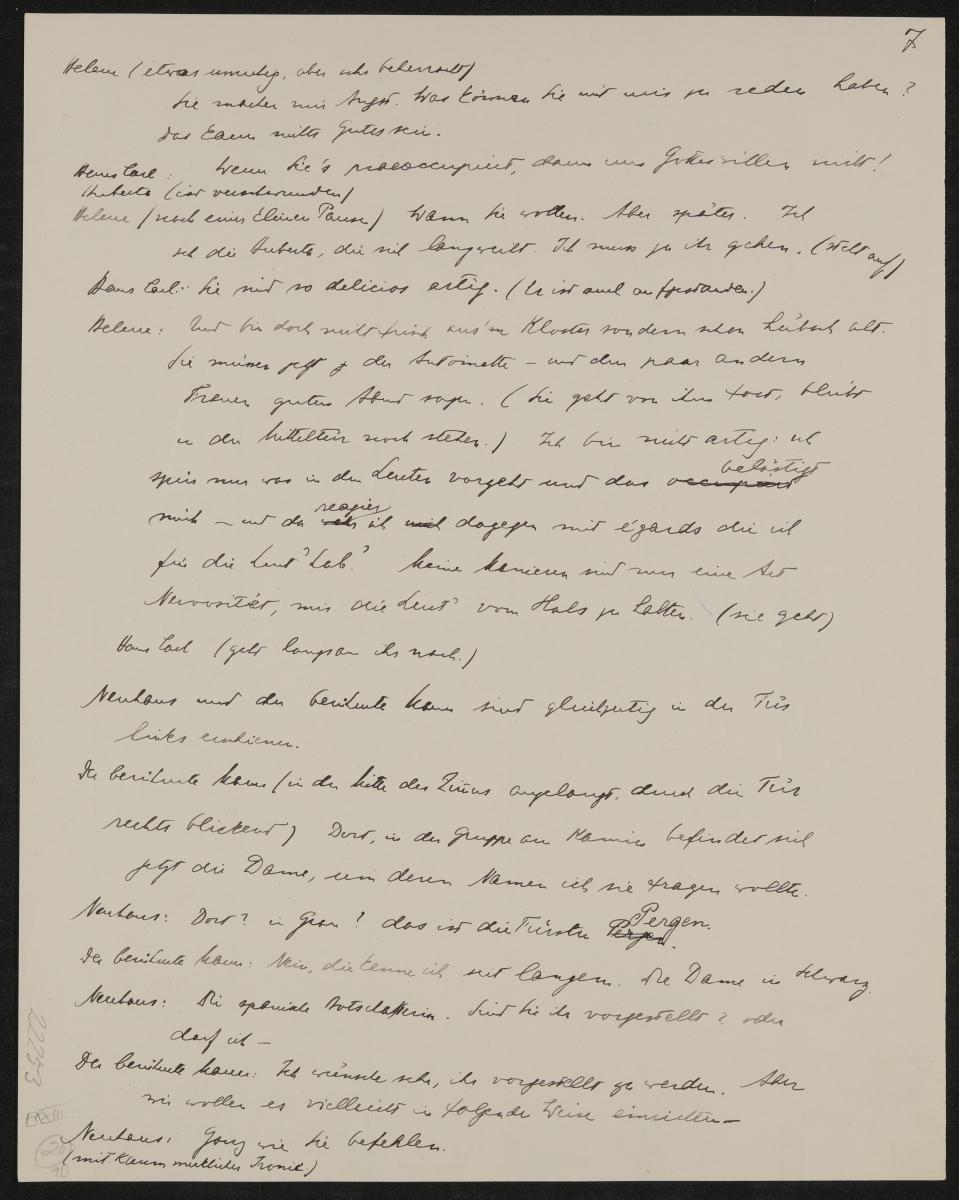 7
Helene (etwas unruhig, aber sehr beherrscht)
Sie machen mir Angst. Was können Sie mit mir zu reden haben?
Das kann nichts Gutes sein.
Hans Carl: Wenn Sie's praeoccupiert, dann um Gotteswillen nicht!
Huberta (ist verschwunden)
Helene (nach einer kleinen Pause) Wann Sie wollen. Aber später. Ich
seh die Huberta, die sich langweilt. Ich muss zu ihr gehen. (steht auf)
Hans Carl: Sie sind so delicios artig. (Er ist auch aufgestanden.)
Helene: Und bin doch nicht frisch aus'm Kloster sondern schon hübsch alt.
Sie müssen jetzt z der Antoinette – und den paar andern
Frauen guten Abend sagen. (Sie geht von ihm fort, bleibt
in der Mitteltür noch stehen.) Ich bin nicht artig: ich
spür nur was in den Leuten vorgeht und das belästigt
mich – und da reagier ich dagegen mit égards die ich
für die Leut' hab'. Meine Manieren sind nur eine Art
Nervosität, mir die Leut' vom Hals zu halten. (sie geht)
Hans Carl (geht langsam ihr nach.)
Neuhaus und der berühmte Mann sind gleichzeitig in der Tür
links erschienen.
Der berühmte Mann (in der Mitte des Zimmers angelangt, durch die Tür
rechts blickend) Dort, in der Gruppe am Kamin befindet sich
jetzt die Dame, um deren Namen ich sie fragen wollte.
Neuhaus: Dort? in Grau? das ist die Fürstin Pergen.
Der berühmte Mann: Nein, die kenne ich seit langem. Die Dame in Schwarz.
Neuhaus: Die spanische Botschafterin. Sind Sie ihr vorgestellt? oder
darf ich –
Der berühmte Mann: Ich wünsche sehr, ihr vorgestellt zu werden. Aber
wir wollen es vielleicht in folgender Weise einrichten –
Neuhaus: Ganz wie Sie befehlen.
(mit kaum merklicher Ironie.)
22253